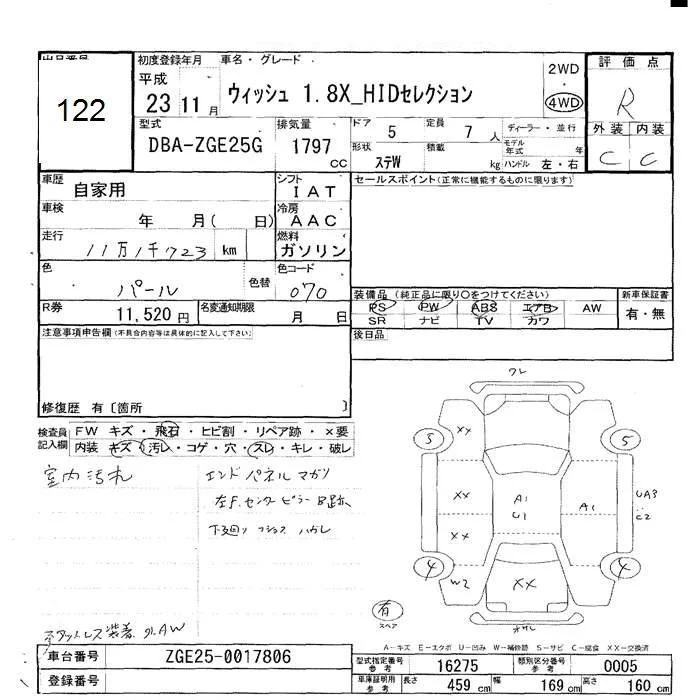 出品番号
122
初度登録年月
平成
23 11 月
車名・グレード
ウィッシュ 1.8X_HIDセレクション
2WD
・
4WD
評価点
R
外装 内装
C C
型式
DBA-ZGE25G
排気量
1797
CC
ドア
5
定員
7 人
形状
ステW
積載
kg
ディーラー・並行
モデル年式 年
ハンドル 左・右
車歴
自家用
シフト
I AT
セールスポイント(正常に機能するものに限ります)
車検
年 月( 日)
冷房
AAC
走行
11万1千723 km
燃料
ガソリン
色
パール
色替
色コード
070
R券
11,520 円
名変通知期限
月 日
装備品 (純正品に限り○をつけてください)
新車保証書
PS PW ABS エアB AW
有・無
SR ナビ TV カワ
後日品
注意事項申告欄(不具合内容等は具体的に記入して下さい)
修復歴 有〔箇所 〕
検査員記入欄
FW キズ・飛石・ヒビ割・リペア跡・×要
内装 キズ・汚レ・コゲ・穴・スレ・キレ・破レ
室内汚れ
エンドパネル マガリ
左F.センターピラー
下廻り ハガレ
装着 AW
クレ
5 XX 5
XX A1 A1 UA3
U1 C2
XX
4 W2 XX 4
有
スペア
A-キズ E-エクボ U-凹み W-補修跡 S-サビ C-腐食 XX-交換済
車台番号
ZGE25-0017806
登録番号
型式指定番号
参考
16275
類別区分番号
参考
0005
車庫証明用
参考
長さ
459 cm
幅
169 cm
高さ
160 cm